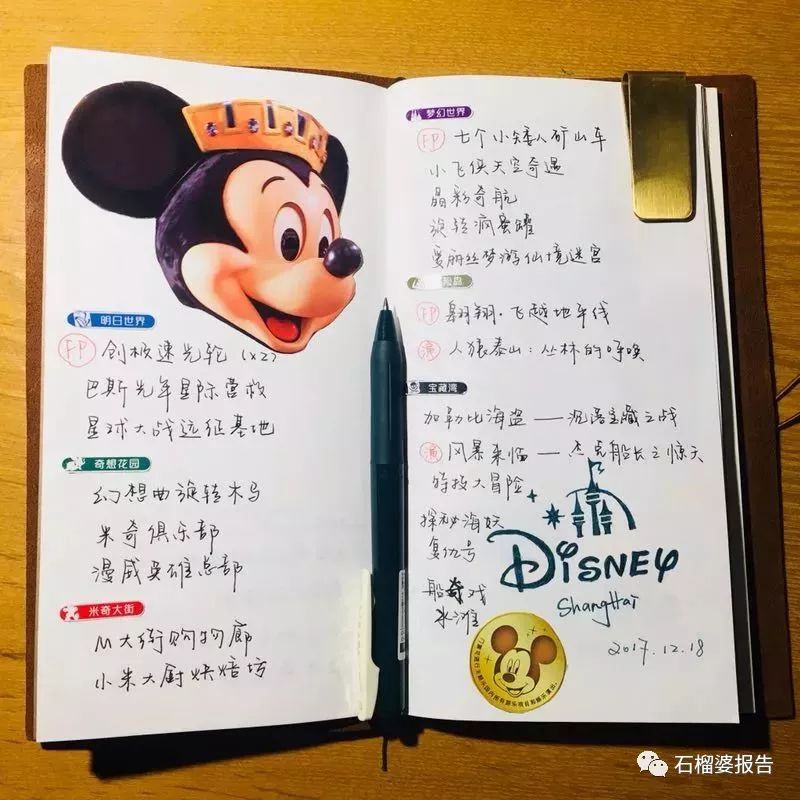 明日世界
FP 创极速光轮 (x2)
巴斯光年星际营救
星球大战远征基地
奇想花园
幻想曲旋转木马
米奇俱乐部
漫威英雄总部
米奇大街
M大街购物廊
小米大厨烘焙坊
梦幻世界
FP 七个小矮人矿山车
小飞侠天空奇遇
晶彩奇航
旋转疯蜜罐
爱丽丝梦游仙境迷宫
险岛
FP 翱翔·飞越地平线
演 人猿泰山:丛林的呼唤
宝藏湾
加勒比海盗——沉落宝藏之战
演 风暴来临——杰克船长之惊天
特技大冒险
探秘海妖
复仇号
船奇戏
水滩
DISNEY
ShangHai
2017.12.18
石榴婆报告